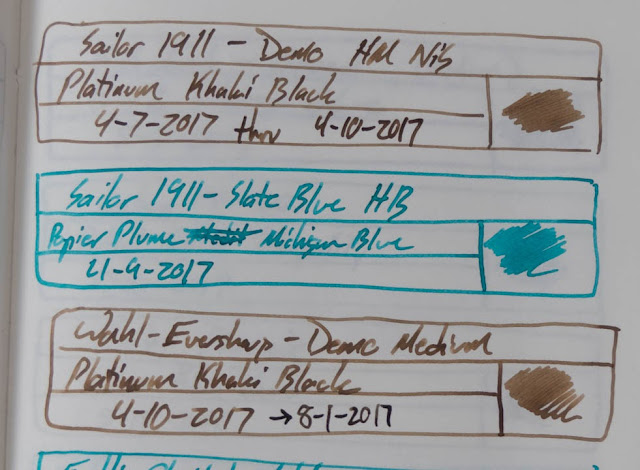 Sailor 1911 - Demo HM Nib
Platinum Khaki Black
4-7-2017 thru 4-10-2017
Sailor 1911 - Slate Blue HB
Papier Plume Michigan Blue
21-9-2017
Wahl-Eversharp - Demo Medium
Platinum Khaki Black
4-10-2017 → 8-1-2017